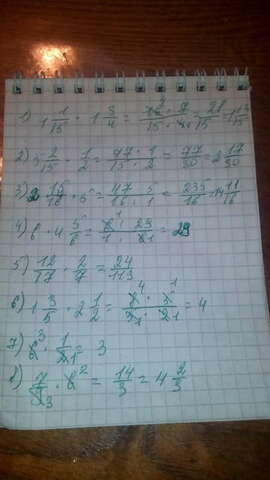 1) 1 1/15 · 1 3/4 = 16 · 7 / 15 · 4 = 28/15 = 1 13/15
2) 5 2/15 · 1/2 = 77 · 1 / 15 · 2 = 77/30 = 2 17/30
3) 2 15/16 · 5 = 47 · 5 / 16 · 1 = 235/16 = 14 11/16
4) 6 · 4 5/6 = 6 · 29 / 1 · 6 = 29
5) 12/17 · 2/7 = 24/113
6) 1 3/5 · 2 1/2 = 8 · 5 / 5 · 2 = 4
7) 6 · 1/2 = 3
8) 7/9 · 6 = 14/3 = 4 2/3